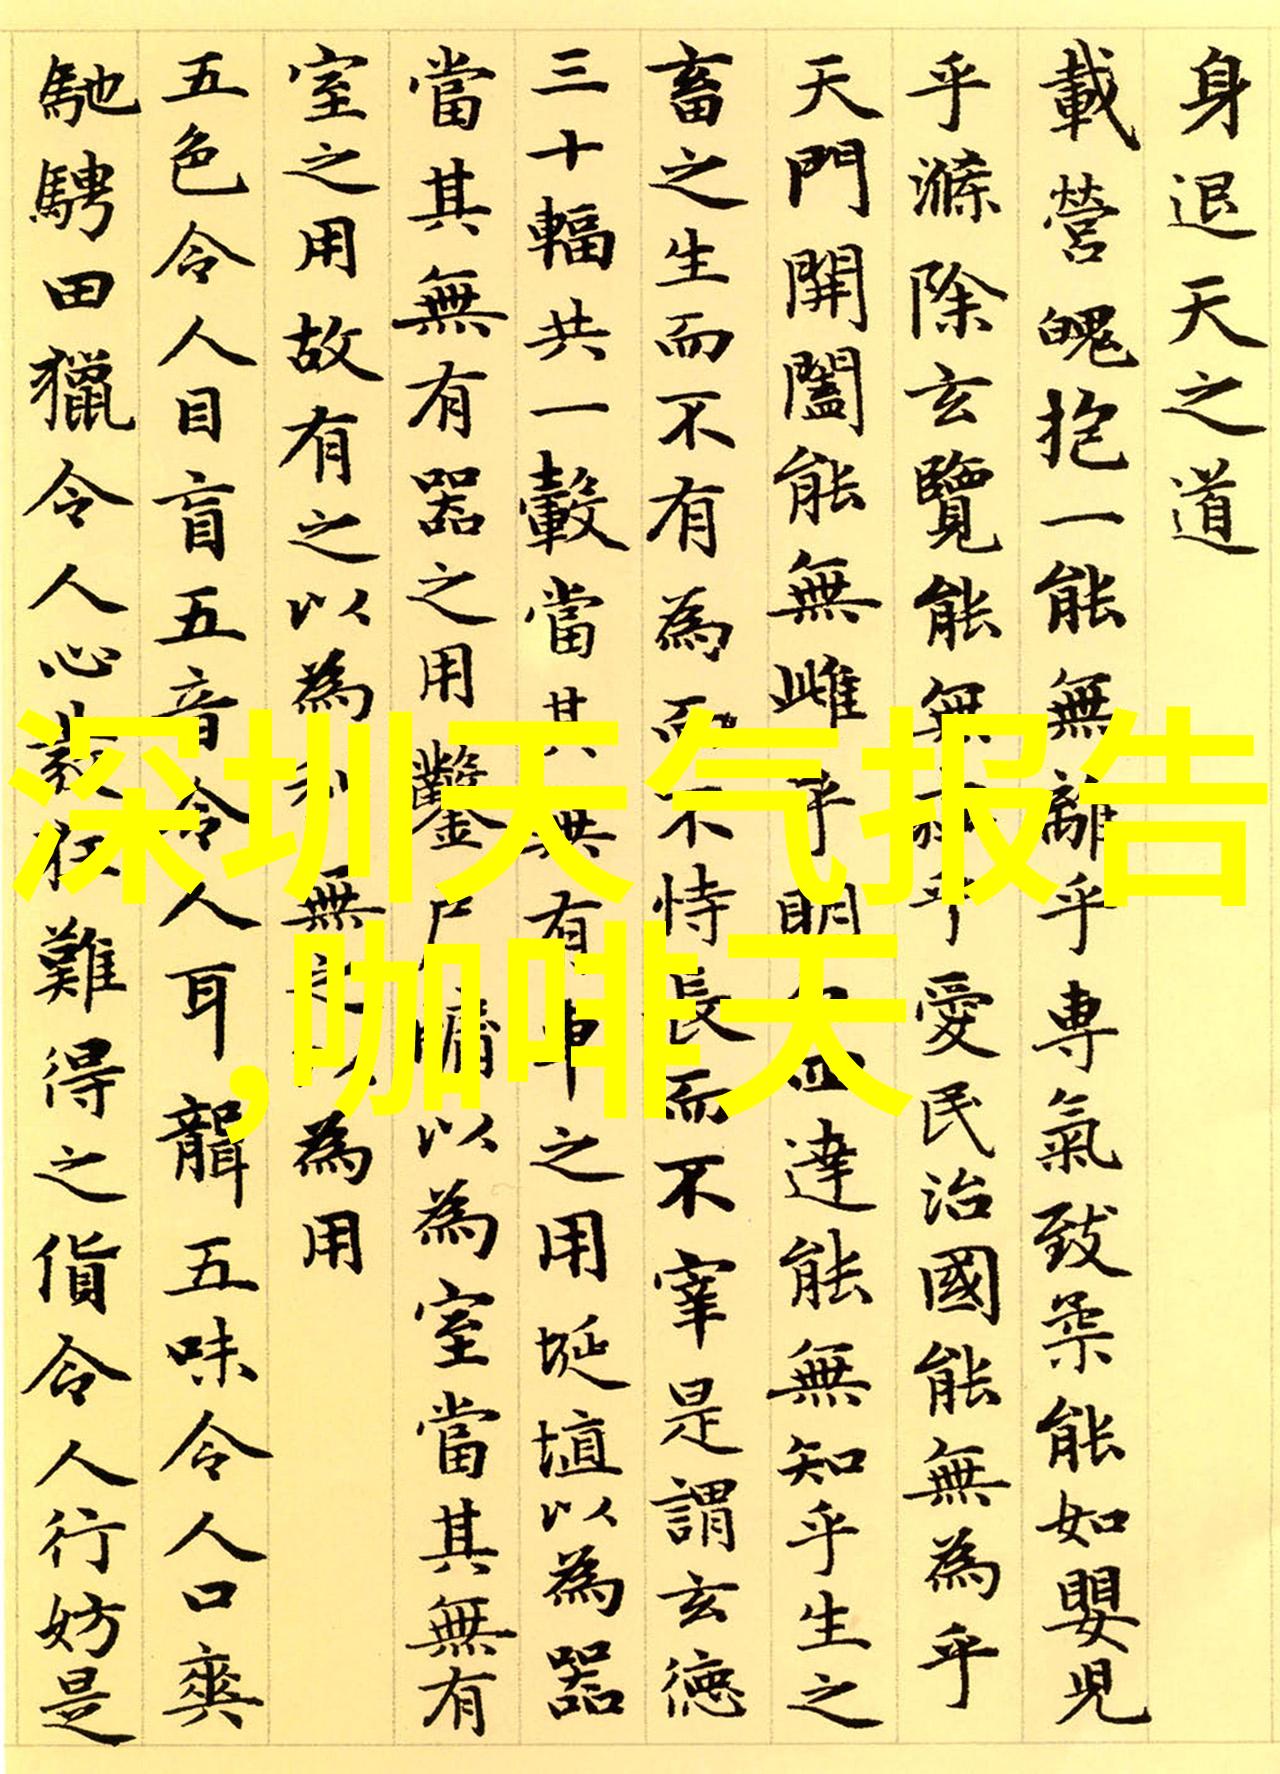 身退天之道
載營魄抱一能無離乎專氣致柔能如嬰兒
乎滌除玄覽能無疵乎愛民治國能無為乎
天門開闔能無雌乎明白四達能無知乎生之
畜之生而不有為而不恃長而不宰是謂玄德
三十輻共一轂當其無有車之用埏埴以為器
當其無有器之用鑿戶牖以為室當其無有
室之用故有之以為利無之以為用
五色令人目盲五音令人耳聾五味令人口爽
馳騁田獵令人心發狂難得之貨令人行妨是
深圳天气报告
,咖啡天